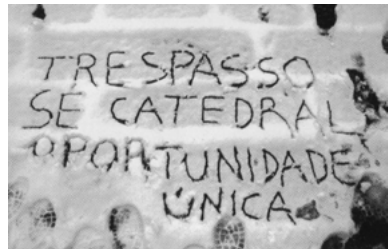 TRESPASSO
SE CATEDRAL
OPORTUNIDADE
ÚNICA